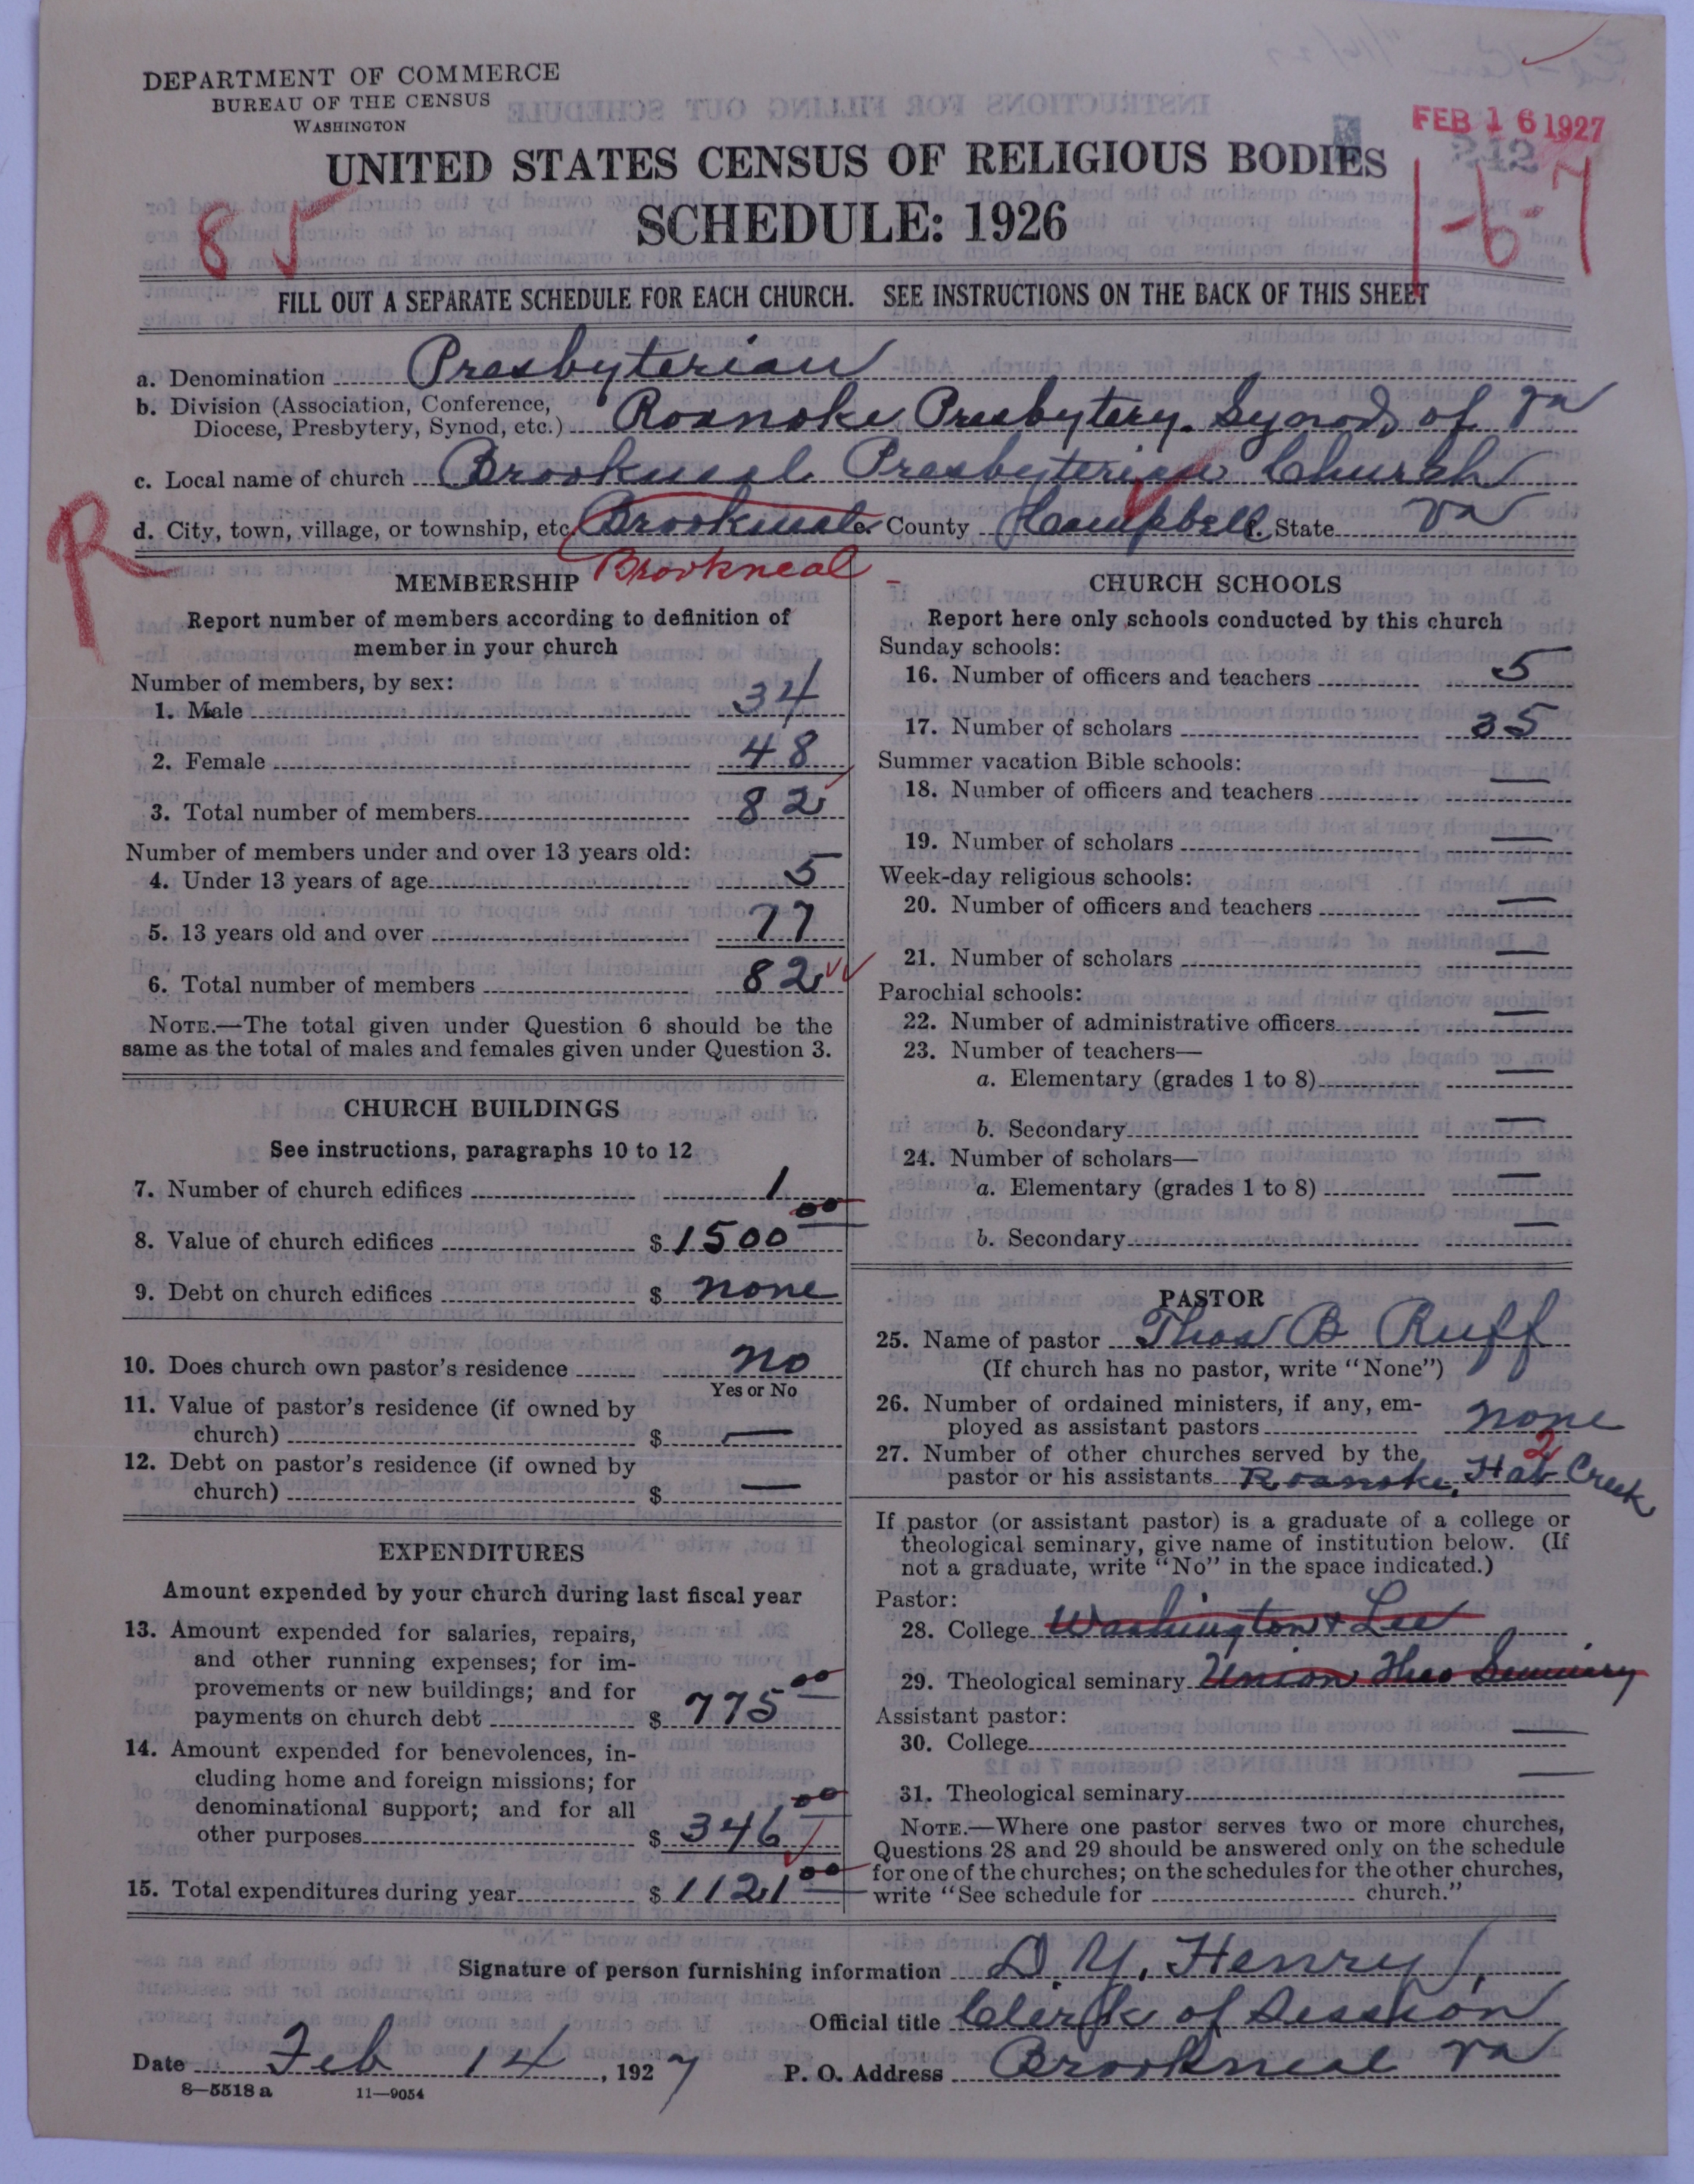 DEPARTMENT OF COMMERCE
BUREAU OF THE CENSUS
WASHINGTON
FEB 16 1927
UNITED STATES CENSUS OF RELIGIOUS BODIES
SCHEDULE: 1926
85
1-6-7
FILL OUT A SEPARATE SCHEDULE FOR EACH CHURCH. SEE INSTRUCTIONS ON THE BACK OF THIS SHEET
a. Denomination Presbyterian
b. Division (Association, Conference, Diocese, Presbytery, Synod, etc.) Roanoke Presbytery. Synod, of Va
c. Local name of church Brookneal Presbyterian Church
R
d. City, town, village, or township, etc. County Campbell. State Va
Brookneal
MEMBERSHIP
Report number of members according to definition of
member in your church
Number of members, by sex:
1. Male 34
2. Female 48
3. Total number of members 82
Number of members under and over 13 years old:
4. Under 13 years of age 5
5. 13 years old and over 77
6. Total number of members 82
NOTE.—The total given under Question 6 should be the
same as the total of males and females given under Question 3.
CHURCH BUILDINGS
See instructions, paragraphs 10 to 12
7. Number of church edifices 1
8. Value of church edifices $ 1500 00
9. Debt on church edifices $ none
10. Does church own pastor's residence no
Yes or No
11. Value of pastor's residence (if owned by
church) $ —
12. Debt on pastor's residence (if owned by
church) $ —
EXPENDITURES
Amount expended by your church during last fiscal year
13. Amount expended for salaries, repairs,
and other running expenses; for im-
provements or new buildings; and for
payments on church debt $ 775 00
14. Amount expended for benevolences, in-
cluding home and foreign missions; for
denominational support; and for all
other purposes $ 346 00
15. Total expenditures during year $ 1121 00
CHURCH SCHOOLS
Report here only schools conducted by this church
Sunday schools:
16. Number of officers and teachers 5
17. Number of scholars 35
Summer vacation Bible schools:
18. Number of officers and teachers —
19. Number of scholars —
Week-day religious schools:
20. Number of officers and teachers —
21. Number of scholars —
Parochial schools:
22. Number of administrative officers —
23. Number of teachers—
a. Elementary (grades 1 to 8) —
b. Secondary —
24. Number of scholars—
a. Elementary (grades 1 to 8) —
b. Secondary —
PASTOR
25. Name of pastor Thos B Ruff
(If church has no pastor, write "None")
26. Number of ordained ministers, if any, em-
ployed as assistant pastors none
27. Number of other churches served by the 2
pastor or his assistants Roanoke, Hat Creek
If pastor (or assistant pastor) is a graduate of a college or
theological seminary, give name of institution below. (If
not a graduate, write "No" in the space indicated.)
Pastor:
28. College Washington & Lee
29. Theological seminary Union Theo Seminary
Assistant pastor:
30. College —
31. Theological seminary —
NOTE.—Where one pastor serves two or more churches,
Questions 28 and 29 should be answered only on the schedule
for one of the churches; on the schedules for the other churches,
write "See schedule for church."
Signature of person furnishing information D. Y. Henry
Official title Clerk of Session
Date Feb 14, 1927 P. O. Address Brookneal Va
8—5518 a 11—9054